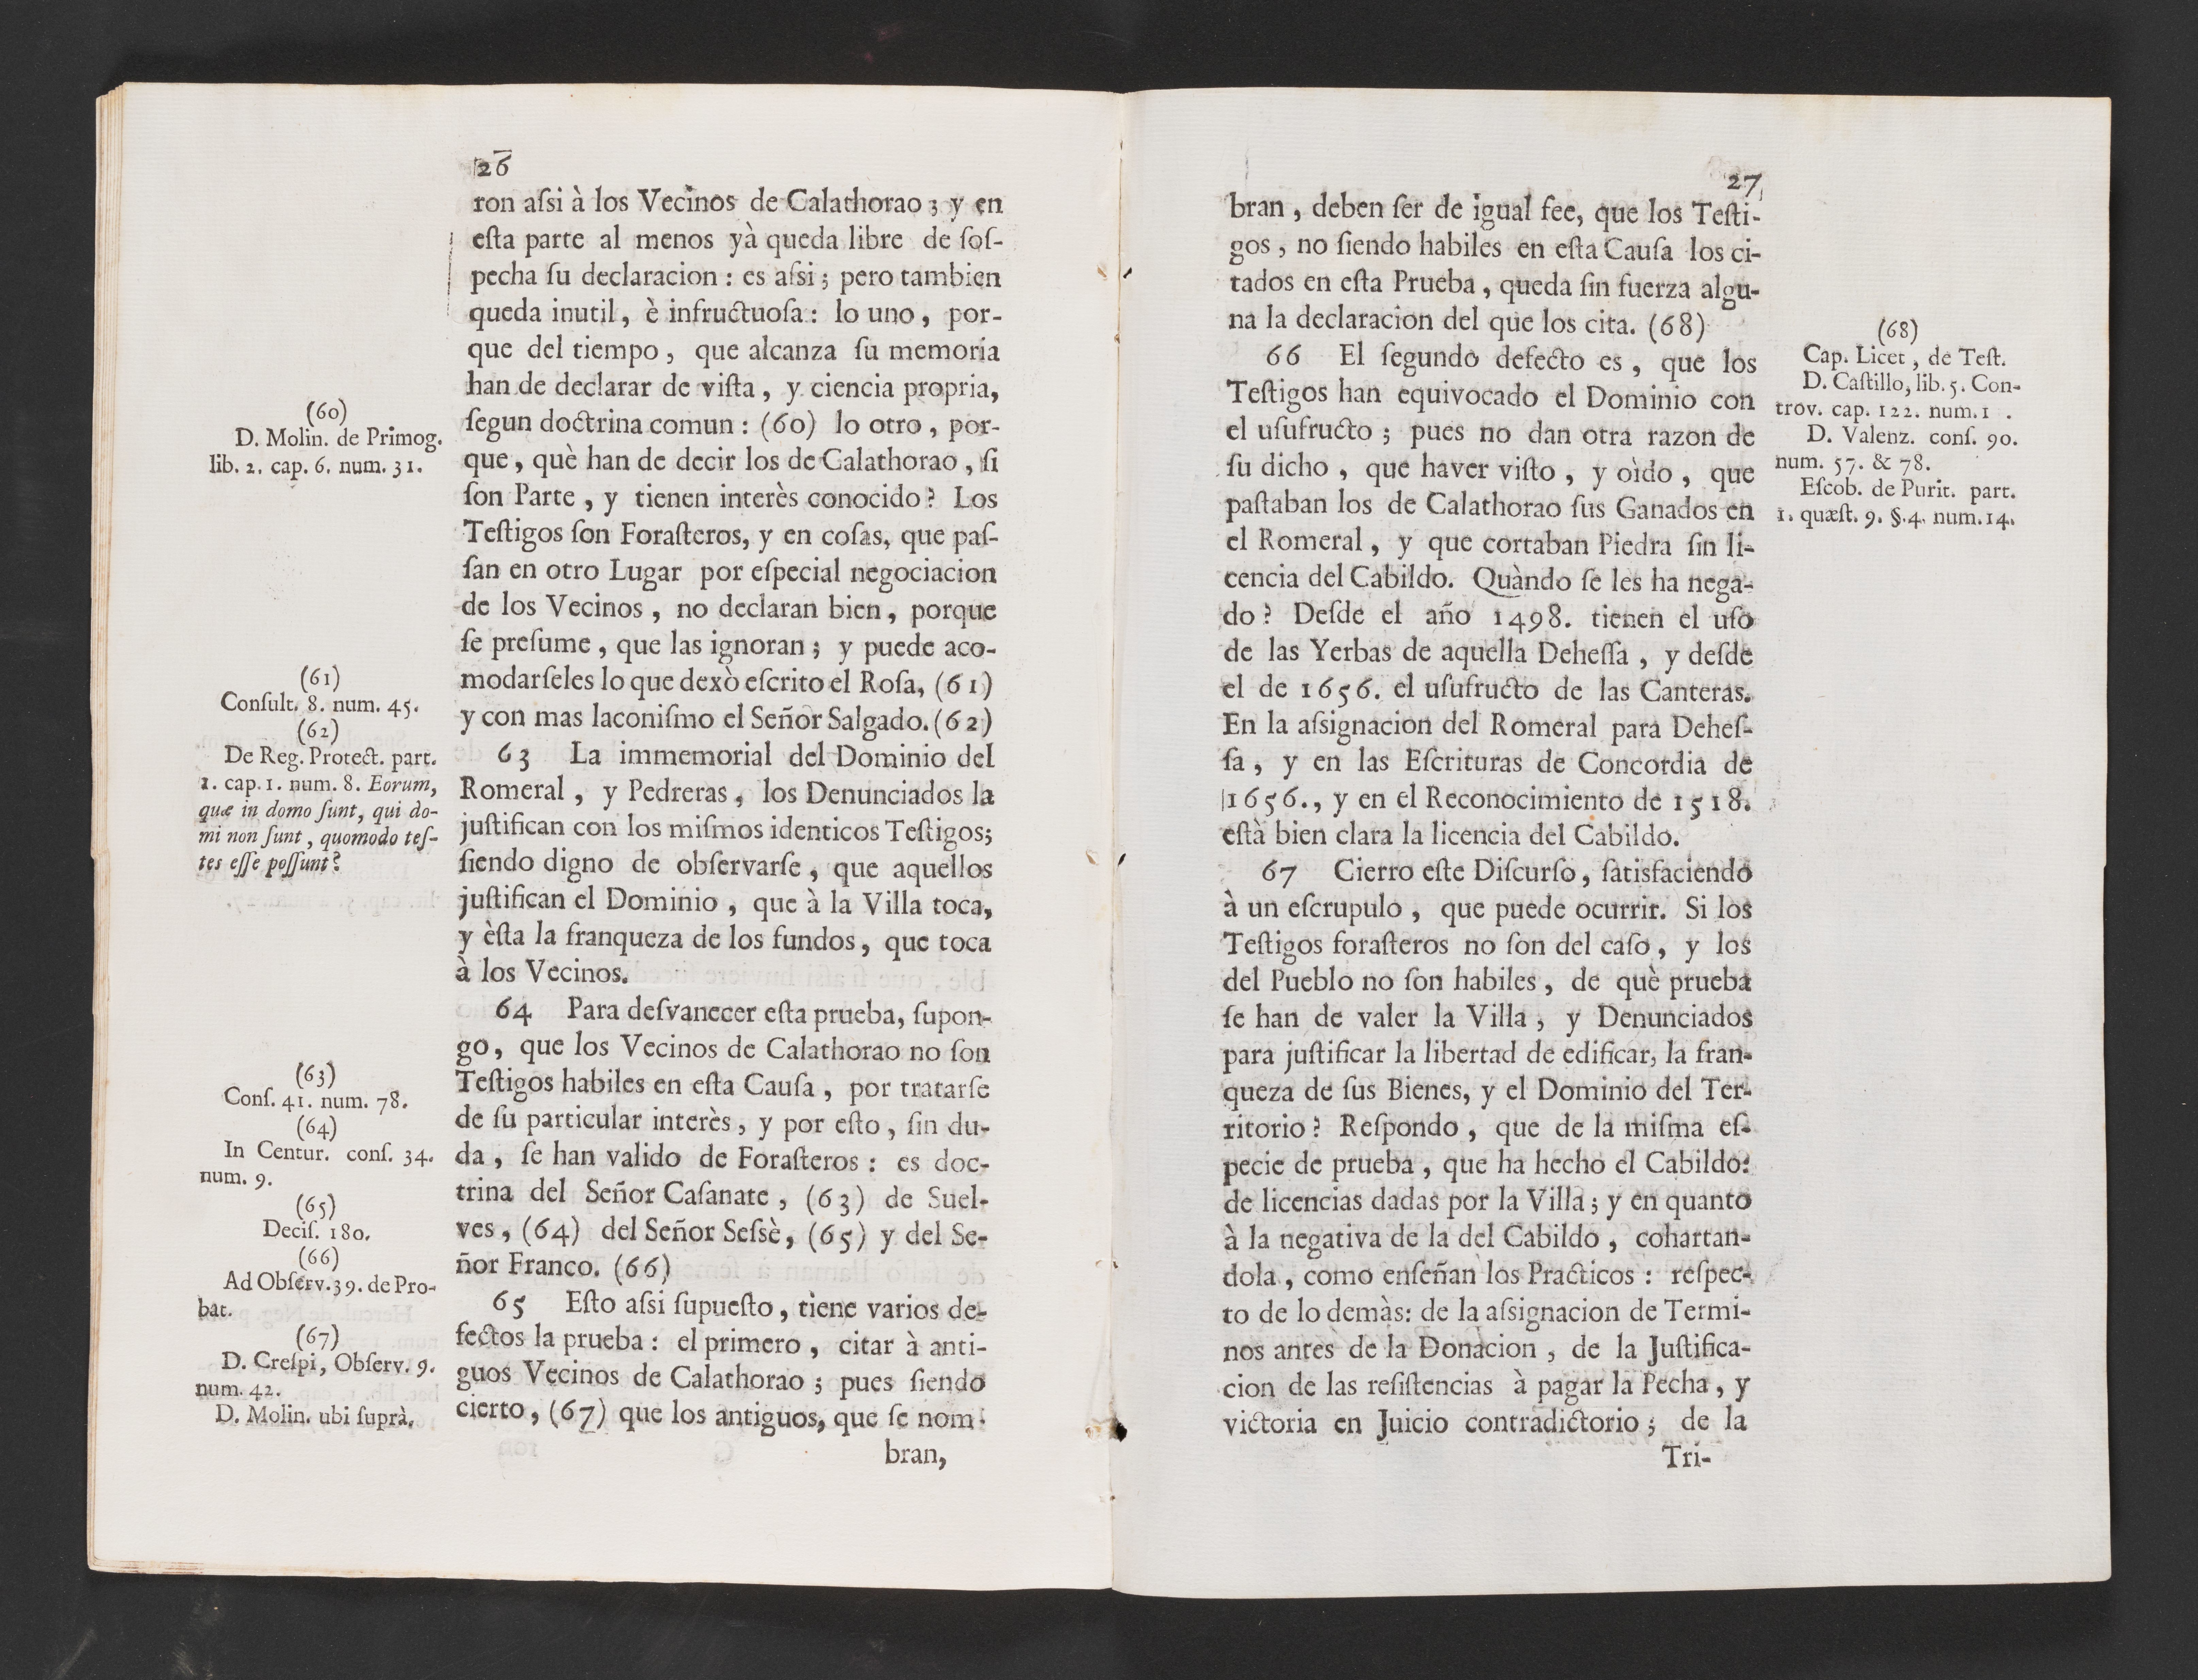 26
ron aſsi à los Vecinos de Calathorao; y en
eſta parte al menos yà queda libre de ſoſ-
pecha ſu declaracion: es aſsi; pero tambien
queda inutil, è infructuoſa: lo uno, por-
que del tiempo, que alcanza ſu memoria
han de declarar de viſta, y ciencia propria,
ſegun doctrina comun: (60) lo otro, por-
que, què han de decir los de Calathorao, ſi
ſon Parte, y tienen interès conocido? Los
Teſtigos ſon Foraſteros, y en coſas, que paſ-
ſan en otro Lugar por eſpecial negociacion
de los Vecinos, no declaran bien, porque
ſe preſume, que las ignoran; y puede aco-
modarſeles lo que dexò eſcrito el Roſa, (61)
y con mas laconiſmo el Señor Salgado. (62)
63 La immemorial del Dominio del
Romeral, y Pedreras, los Denunciados la
juſtifican con los miſmos identicos Teſtigos;
ſiendo digno de obſervarſe, que aquellos
juſtifican el Dominio, que à la Villa toca,
y èſta la franqueza de los fundos, que toca
à los Vecinos.
64 Para deſvanecer eſta prueba, ſupon-
go, que los Vecinos de Calathorao no ſon
Teſtigos habiles en eſta Cauſa, por tratarſe
de ſu particular interès, y por eſto, ſin du-
da, ſe han valido de Foraſteros: es doc-
trina del Señor Caſanate, (63) de Suel-
ves, (64) del Señor Seſsè, (65) y del Se-
ñor Franco. (66)
65 Eſto aſsi ſupueſto, tiene varios de-
fectos la prueba: el primero, citar à anti-
guos Vecinos de Calathorao; pues ſiendo
cierto, (67) que los antiguos, que ſe nom-
bran,
(60)
D. Molin. de Primog.
lib. 2. cap. 6. num. 31.
(61)
Conſult. 8. num. 45.
(62)
De Reg. Protect. part.
1. cap. 1. num. 8. Eorum,
quæ in domo ſunt, qui do-
mi non ſunt, quomodo teſ-
tes eſſe poſſunt?
(63)
Conſ. 41. num. 78.
(64)
In Centur. conſ. 34.
num. 9.
(65)
Deciſ. 180.
(66)
Ad Obſerv. 39. de Pro-
bat.
(67)
D. Creſpi, Obſerv. 9.
num. 42.
D. Molin. ubi ſuprà.
27
bran, deben ſer de igual fee, que los Teſti-
gos, no ſiendo habiles en eſta Cauſa los ci-
tados en eſta Prueba, queda ſin fuerza algu-
na la declaracion del que los cita. (68)
66 El ſegundo defecto es, que los
Teſtigos han equivocado el Dominio con
el uſufructo; pues no dan otra razon de
ſu dicho, que haver viſto, y oìdo, que
paſtaban los de Calathorao ſus Ganados en
el Romeral, y que cortaban Piedra ſin li-
cencia del Cabildo. Quàndo ſe les ha nega-
do? Deſde el año 1498. tienen el uſo
de las Yerbas de aquella Deheſſa, y deſde
el de 1656. el uſufructo de las Canteras.
En la aſsignacion del Romeral para Deheſ-
ſa, y en las Eſcrituras de Concordia de
1656., y en el Reconocimiento de 1518.
eſtà bien clara la licencia del Cabildo.
67 Cierro eſte Diſcurſo, ſatisfaciendo
à un eſcrupulo, que puede ocurrir. Si los
Teſtigos foraſteros no ſon del caſo, y los
del Pueblo no ſon habiles, de què prueba
ſe han de valer la Villa, y Denunciados
para juſtificar la libertad de edificar, la fran-
queza de ſus Bienes, y el Dominio del Ter-
ritorio? Reſpondo, que de la miſma eſ-
pecie de prueba, que ha hecho el Cabildo:
de licencias dadas por la Villa; y en quanto
à la negativa de la del Cabildo, cohartan-
dola, como enſeñan los Practicos: reſpec-
to de lo demàs: de la aſsignacion de Termi-
nos antes de la Donacion, de la Juſtifica-
cion de las reſiſtencias à pagar la Pecha, y
victoria en Juicio contradictorio; de la
Tri-
(68)
Cap. Licet, de Teſt.
D. Caſtillo, lib. 5. Con-
trov. cap. 122. num. 1 .
D. Valenz. conſ. 90.
num. 57. & 78.
Eſcob. de Purit. part.
1. quæſt. 9. §. 4. num. 14.